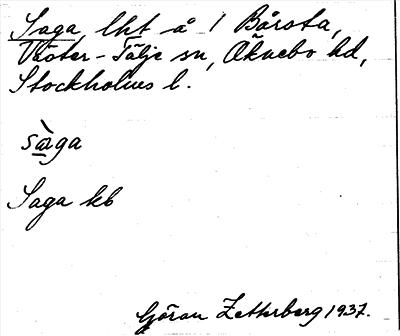 Saga, lht å 1 Bårsta,
Väster-Tälje sn, Öknebo hd,
Stockholms l.
sàga
Saga kb
Göran Zetterberg 1937.